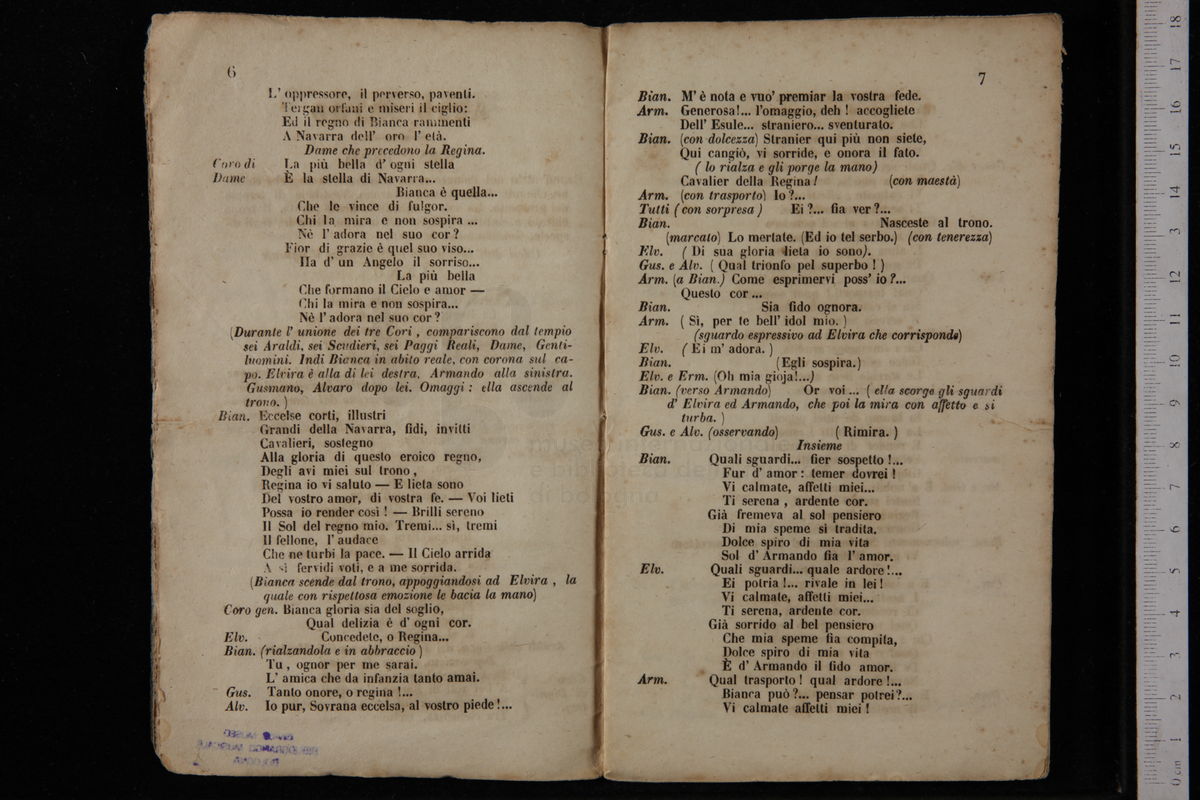 6
L' oppressore, il perverso, paventi.
Tergan orfani e miseri il ciglio:
Ed il regno di Bianca rammenti
A Navarra dell' oro l' età.
Dame che precedono la Regina.
Coro di La più bella d' ogni stella
Dame È la stella di Navarra...
Bianca è quella...
Che le vince di fulgor.
Chi la mira e non sospira ...
Nè l' adora nel suo cor ?
Fior di grazie è quel suo viso...
Ha d' un Angelo il sorriso...
La più bella
Che formano il Cielo e amor —
Chi la mira e non sospira...
Nè l' adora nel suo cor ?
(Durante l' unione dei tre Cori , compariscono dal tempio
sei Araldi, sei Scudieri, sei Paggi Reali, Dame, Genti-
luomini. Indi Bianca in abito reale, con corona sul ca-
po. Elvira è alla di lei destra, Armando alla sinistra.
Gusmano, Alvaro dopo lei. Omaggi : ella ascende al
trono. )
Bian. Eccelse corti, illustri
Grandi della Navarra, fidi, invitti
Cavalieri, sostegno
Alla gloria di questo eroico regno,
Degli avi miei sul trono ,
Regina io vi saluto — E lieta sono
Del vostro amor, di vostra fe. — Voi lieti
Possa io render così ! — Brilli sereno
Il Sol del regno mio. Tremi... sì, tremi
Il fellone, l' audace
Che ne turbi la pace. — Il Cielo arrida
A sì fervidi voti, e a me sorrida.
(Bianca scende dal trono, appoggiandosi ad Elvira , la
quale con rispettosa emozione le bacia la mano)
Coro gen. Bianca gloria sia del soglio,
Qual delizia è d' ogni cor.
Elv. Concedete, o Regina...
Bian. (rialzandola e in abbraccio )
Tu , ognor per me sarai.
L' amica che da infanzia tanto amai.
Gus. Tanto onore, o regina !...
Alv. Io pur, Sovrana eccelsa, al vostro piede !...
7
Bian. M' è nota e vuo' premiar la vostra fede.
Arm. Generosa!... l'omaggio, deh ! accogliete
Dell' Esule... straniero... sventurato.
Bian. (con dolcezza) Stranier qui più non siete,
Qui cangiò, vi sorride, e onora il fato.
( lo rialza e gli porge la mano)
Cavalier della Regina ! (con maestà)
Arm. (con trasporto) Io ?...
Tutti ( con sorpresa ) Ei ?... fia ver ?...
Bian. Nasceste al trono.
(marcato) Lo mertate. (Ed io tel serbo.) (con tenerezza)
Elv. ( Di sua gloria lieta io sono).
Gus. e Alv. ( Qual trionfo pel superbo ! )
Arm. (a Bian.) Come esprimervi poss' io ?...
Questo cor ...
Bian. Sia fido ognora.
Arm. ( Sì, per te bell' idol mio. )
(sguardo espressivo ad Elvira che corrisponde)
Elv. ( Ei m' adora. )
Bian. (Egli sospira.)
Elv. e Erm. (Oh mia gioja!...)
Bian. (verso Armando) Or voi ... ( ella scorge gli sguardi
d' Elvira ed Armando, che poi la mira con affetto e si
turba. )
Gus. e Alv. (osservando) ( Rimira. )
Insieme
Bian. Quali sguardi... fier sospetto !...
Fur d' amor : temer dovrei !
Vi calmate, affetti miei...
Ti serena , ardente cor.
Già fremeva al sol pensiero
Di mia speme sì tradita.
Dolce spiro di mia vita
Sol d' Armando fia l' amor.
Elv. Quali sguardi... quale ardore !...
Ei potria !... rivale in lei !
Vi calmate, affetti miei...
Ti serena, ardente cor.
Già sorrido al bel pensiero
Che mia speme fia compita,
Dolce spiro di mia vita
È d' Armando il fido amor.
Arm. Qual trasporto ! qual ardore !...
Bianca può ?... pensar potrei ?...
Vi calmate affetti miei !